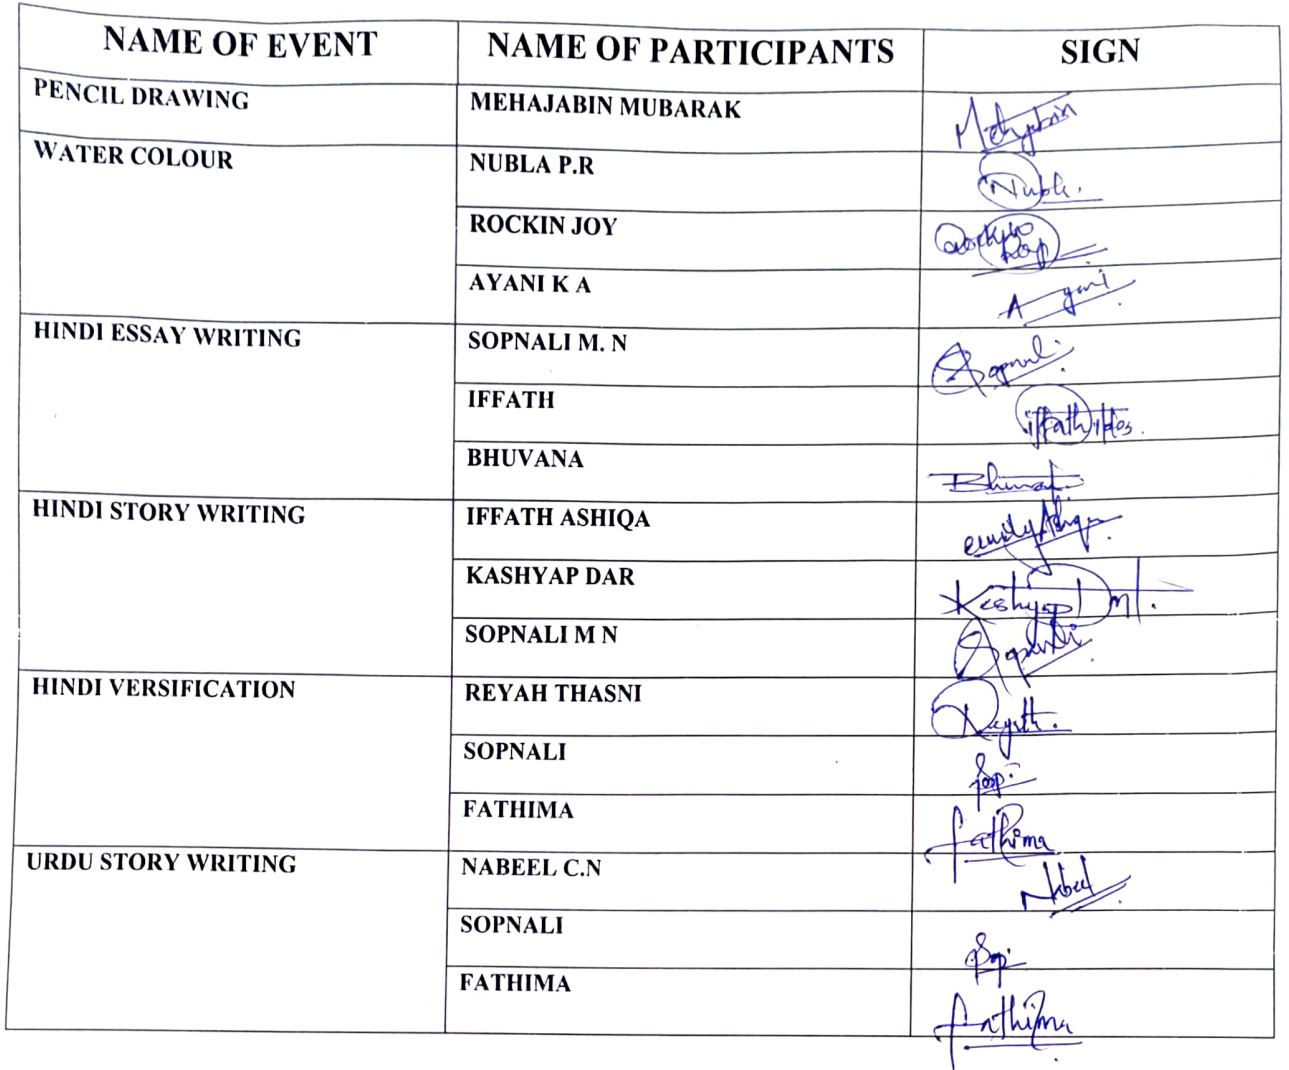 NAME OF EVENT NAME OF PARTICIPANTS SIGN
PENCIL DRAWING MEHAJABIN MUBARAK
WATER COLOUR NUBLA P.R
ROCKIN JOY
AYANI K A Ayani
HINDI ESSAY WRITING SOPNALI M. N
IFFATH
BHUVANA
HINDI STORY WRITING IFFATH ASHIQA
KASHYAP DAR
SOPNALI M N
HINDI VERSIFICATION REYAH THASNI
SOPNALI
FATHIMA Fathima
URDU STORY WRITING NABEEL C.N Nabeel
SOPNALI
FATHIMA Fathima